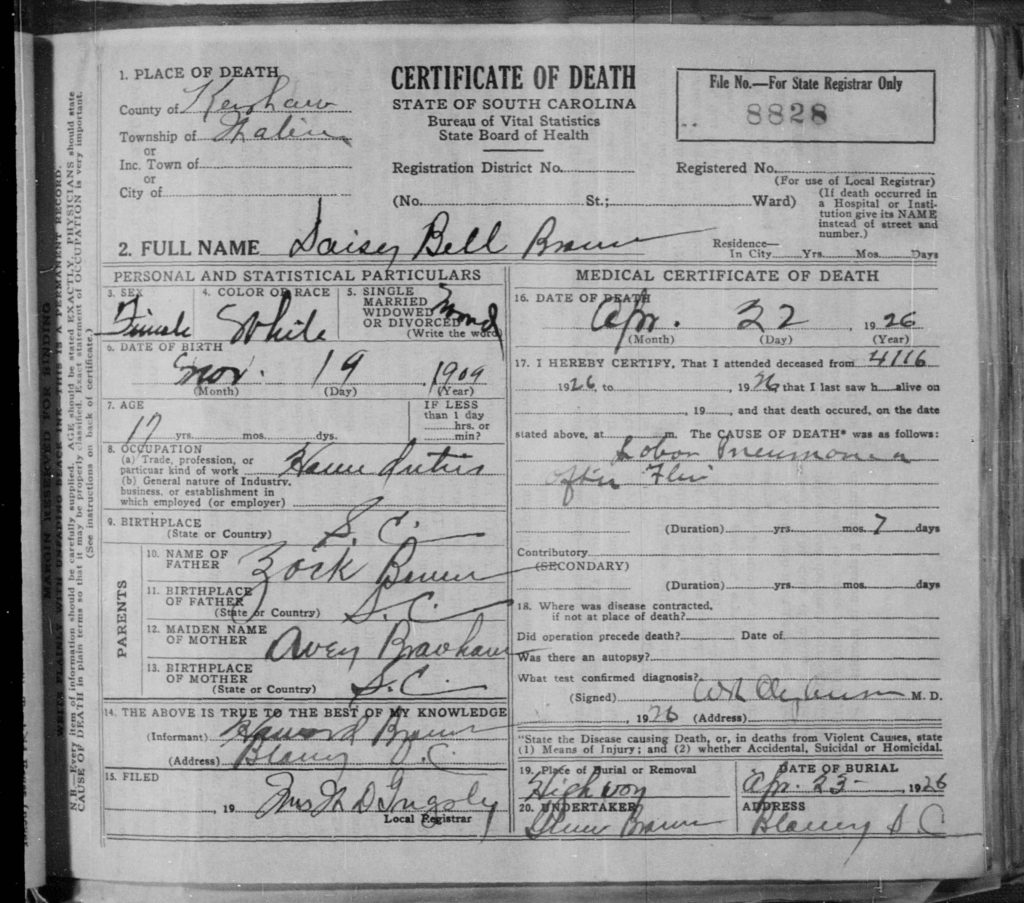 1. PLACE OF DEATH
County of Kershaw
Township of
or
Inc. Town of
or
City of
CERTIFICATE OF DEATH
STATE OF SOUTH CAROLINA
Bureau of Vital Statistics
State Board of Health
File No.—For State Registrar Only
8828
Registration District No.
Registered No.
(For use of Local Registrar)
(No. St.; Ward)
(If death occurred in
a Hospital or Insti-
tution give its NAME
instead of street and
number.)
2. FULL NAME Daisey Bell Brown
Residence—
In City Yrs. Mos. Days
PERSONAL AND STATISTICAL PARTICULARS
3. SEX
Female
4. COLOR OR RACE
White
5. SINGLE
MARRIED
WIDOWED
OR DIVORCED
(Write the word)
6. DATE OF BIRTH
Nov. 19 1909
(Month) (Day) (Year)
7. AGE
17 yrs. mos. dys.
IF LESS
than 1 day
hrs. or
min?
8. OCCUPATION
(a) Trade, profession, or
particuar kind of work House duties
(b) General nature of Industry.
business, or establishment in
which employed (or employer)
9. BIRTHPLACE
(State or Country) S. C.
PARENTS
10. NAME OF
FATHER Zack Brown
11. BIRTHPLACE
OF FATHER
(State or Country) S. C.
12. MAIDEN NAME
OF MOTHER Avey Branham
13. BIRTHPLACE
OF MOTHER
(State or Country) S. C.
14. THE ABOVE IS TRUE TO THE BEST OF MY KNOWLEDGE
(Informant) Howard Brown
(Address) Blaney S. C.
15. FILED
, 19 Mrs
Local Registrar
MEDICAL CERTIFICATE OF DEATH
16. DATE OF DEATH
Apr. 22, 1926
(Month) (Day) (Year)
17. I HEREBY CERTIFY, That I attended deceased from 4116
1926 to , 1926 that I last saw h alive on
, 19 , and that death occured, on the date
stated above, at m. The CAUSE OF DEATH* was as follows:
Lobar Pneumonia
after Flu
(Duration) yrs. mos. 7 days
Contributory
(SECONDARY)
(Duration) yrs. mos. days
18. Where was disease contracted,
if not at place of death?
Did operation precede death? Date of
Was there an autopsy?
What test confirmed diagnosis?
(Signed) M. D.
, 1926 (Address)
"State the Disease causing Death, or, in deaths from Violent Causes, state
(1) Means of Injury; and (2) whether Accidental, Suicidal or Homicidal.
19. Place of Burial or Removal
Highway
DATE OF BURIAL
Apr. 23 , 1926
20. UNDERTAKER
Brown
ADDRESS
Blaney S C
MARGIN RESERVED FOR BINDING
WRITE PLAINLY WITH UNFADING BLACK INK—THIS IS A PERMANENT RECORD.
N.B.—Every item of information should be carefully supplied. AGE should be stated EXACTLY. PHYSICIANS should state
CAUSE OF DEATH in plain terms so that it may be properly classified. Exact statement of OCCUPATION is very important.
(See instructions on back of certificate.)